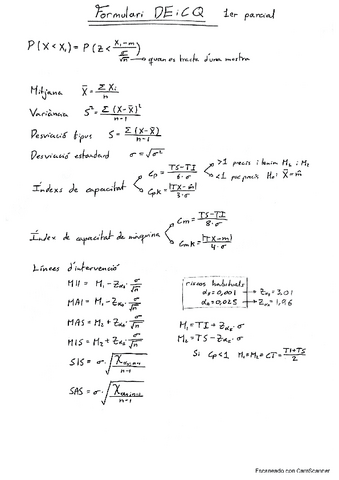 Formulari DEiCQ 1er parcial
P(X < X₁) = P(Z < (X₁-m)/(σ/√n)) → quan es tracta d'una mostra
Mitjana X̄ = Σ Xi / n
Variància S² = Σ (X-X̄)² / n-1
Desviació tipus S = Σ (X-X̄) / n-1
Desviació estandard σ = √σ²
Índexs de capacitat
Cp = TS-TI / 6·σ
>1 precís i tenim M₁ i M₂
<1 poc precís
Cpk = |TX-m̂| / 3·σ
Índex de capacitat de màquina
Cm = TS-TI / 8·σ
Cmk = |TX-m| / 4·σ
Línees d'intervenció
MII = M₁ - Zα₁ · σ/√n
MAI = M₁ - Zα₀ · σ/√n
MAS = M₂ + Zα₀ · σ/√n
MIS = M₂ + Zα₁ · σ/√n
SIS = σ · √
SAS = σ · √
riscos habituals
= 0,001 → Z = 3,01
= 0,025 → Z = 1,96
M₁ = TI + Z · σ
M₂ = TS - Z · σ
Si Cp<1 M₁ = M₂ = CT = TI+TS / 2
Escaneado con CamScanner